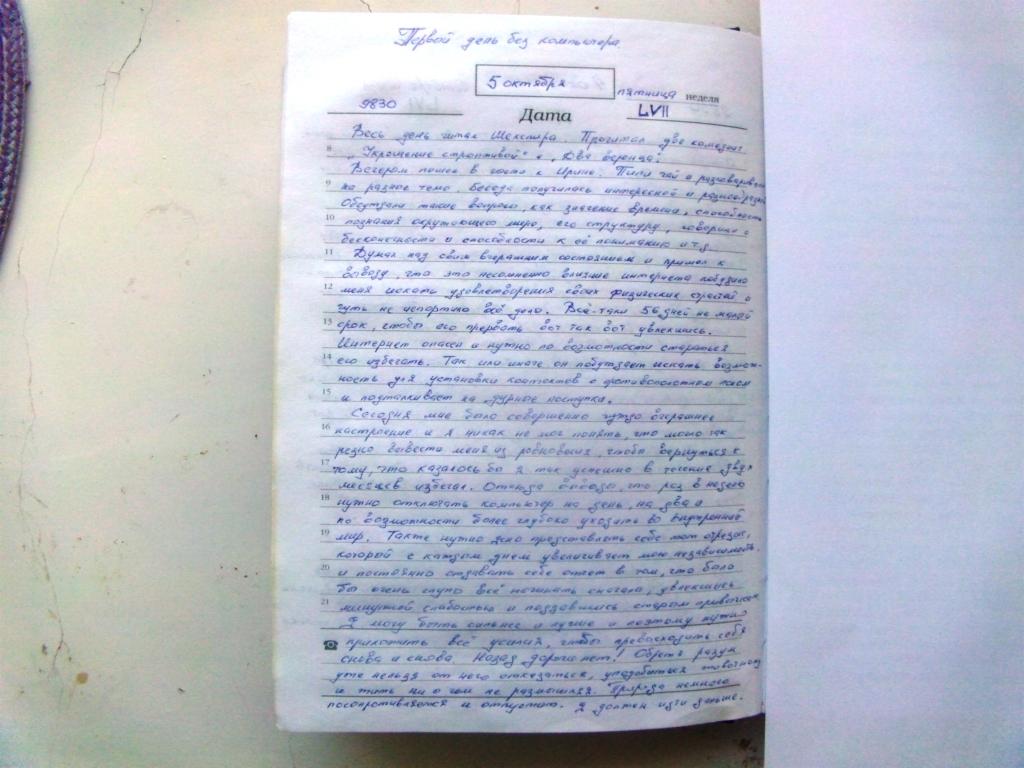 Первой день без компьютера.
5 октября
пятница неделя
9830 Дата LVII
Весь день читал Шекспира. Прочитал две комедии:
8 „Укрощение строптивой" и „Два веронца".
Вечером пошел в гости к Ирине. Пили чай и разговаривали
9 на разные темы. Беседа получилась интересной и разнообразной
Обсуждали такие вопросы, как значение времени, способность
10 познания окружающего мира, его структуру, говорили о
бесконечности и способности к её пониманию и т.д.
11 Думал над своим вчерашним состоянием и пришел к
выводу, что это несомненно влияние интернета побудило
12 меня искать удовлетворения своих физических страстей и
чуть не испортило всё дело. Всё-таки 56 дней не малый
13 срок, чтобы его прервать вот так вот увлекшись.
Интернет опасен и нужно по возможности стараться
14 его избегать. Так или иначе он побуждает искать возмож-
ность для установки контактов с противоположным полом
15 и подталкивает на дурные поступки.
Сегодня мне было совершенно чуждо вчерашнее
16 настроение и я никак не мог понять, что могло так
резко вывести меня из равновесия, чтобы вернуться к
17 тому, что казалось бы я так успешно в течение двух
месяцев избегал. Отсюда выводы, что раз в неделю
18 нужно отключать компьютер на день, на два и
по возможности более глубоко уходить во внутренний
19 мир. Также нужно ясно представлять себе тот отрезок,
который с каждым днем увеличивает мою независимость
20 и постоянно отдавать себе отчет в том, что было
бы очень глупо всё начинать сначала, увлекшись
21 минутной слабостью и поддавшись старым привычкам.
Я могу быть сильнее и лучше и поэтому нужно
приложить все усилия, чтобы превосходить себя
снова и снова. Назад дороги нет! Обретя разум
уже нельзя от него отказаться, уподобиться животному
и жить ни о чем не размышляя. Природа немного
посопротивляется и отпустит. Я должен идти дальше.